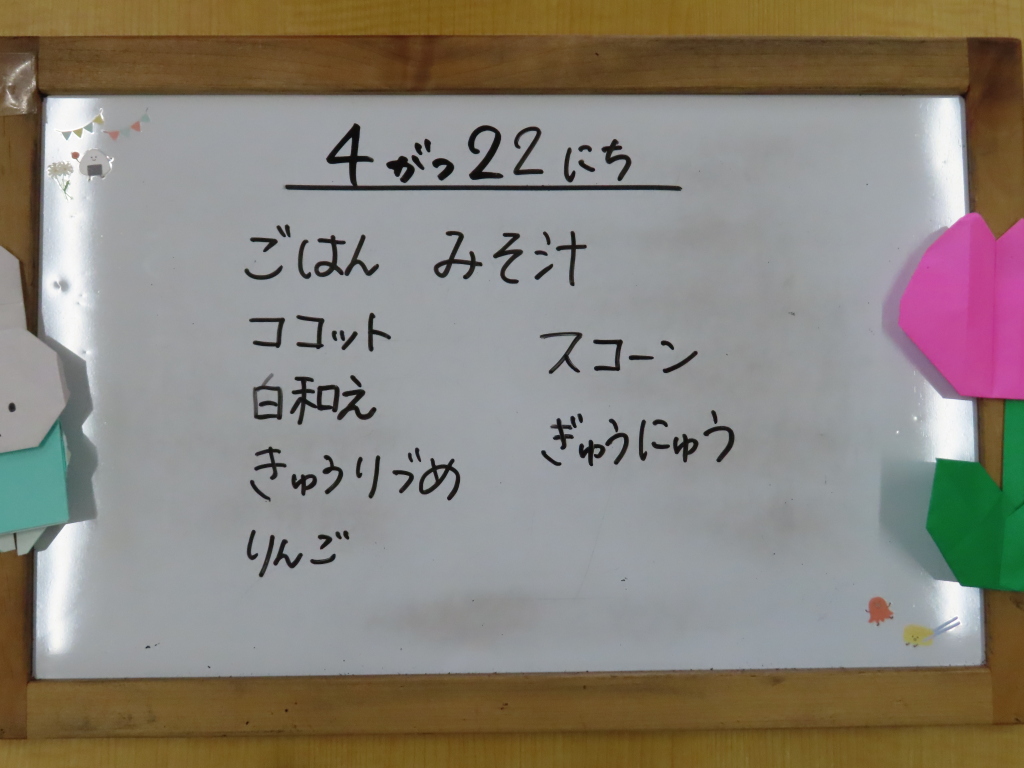 4がつ22にち
ごはん みそ汁
ココット
白和え
きゅうりづめ
りんご
スコーン
ぎゅうにゅう